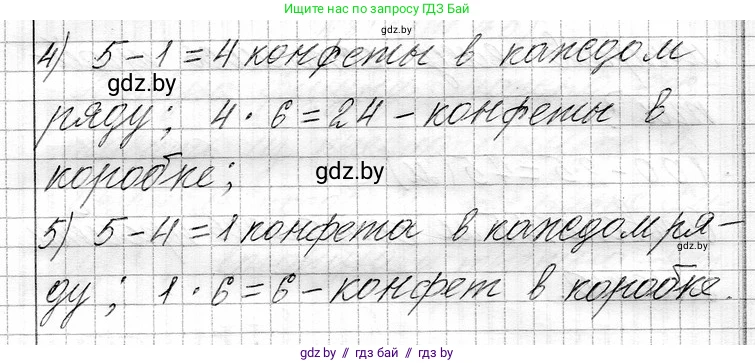 Ищите нас по запросу ГДЗ Бай
gdz.by
4) 5 - 1 = 4 конфеты в каждом
gdz.by
ряду; 4 · 6 = 24 - конфеты в
gdz.by
коробке;
5) 5 - 4 = 1 конфета в каждом ря-
gdz.by
ду; 1 · 6 = 6 - конфет в коробке.
gdz.by // gdz.by // gdz.by